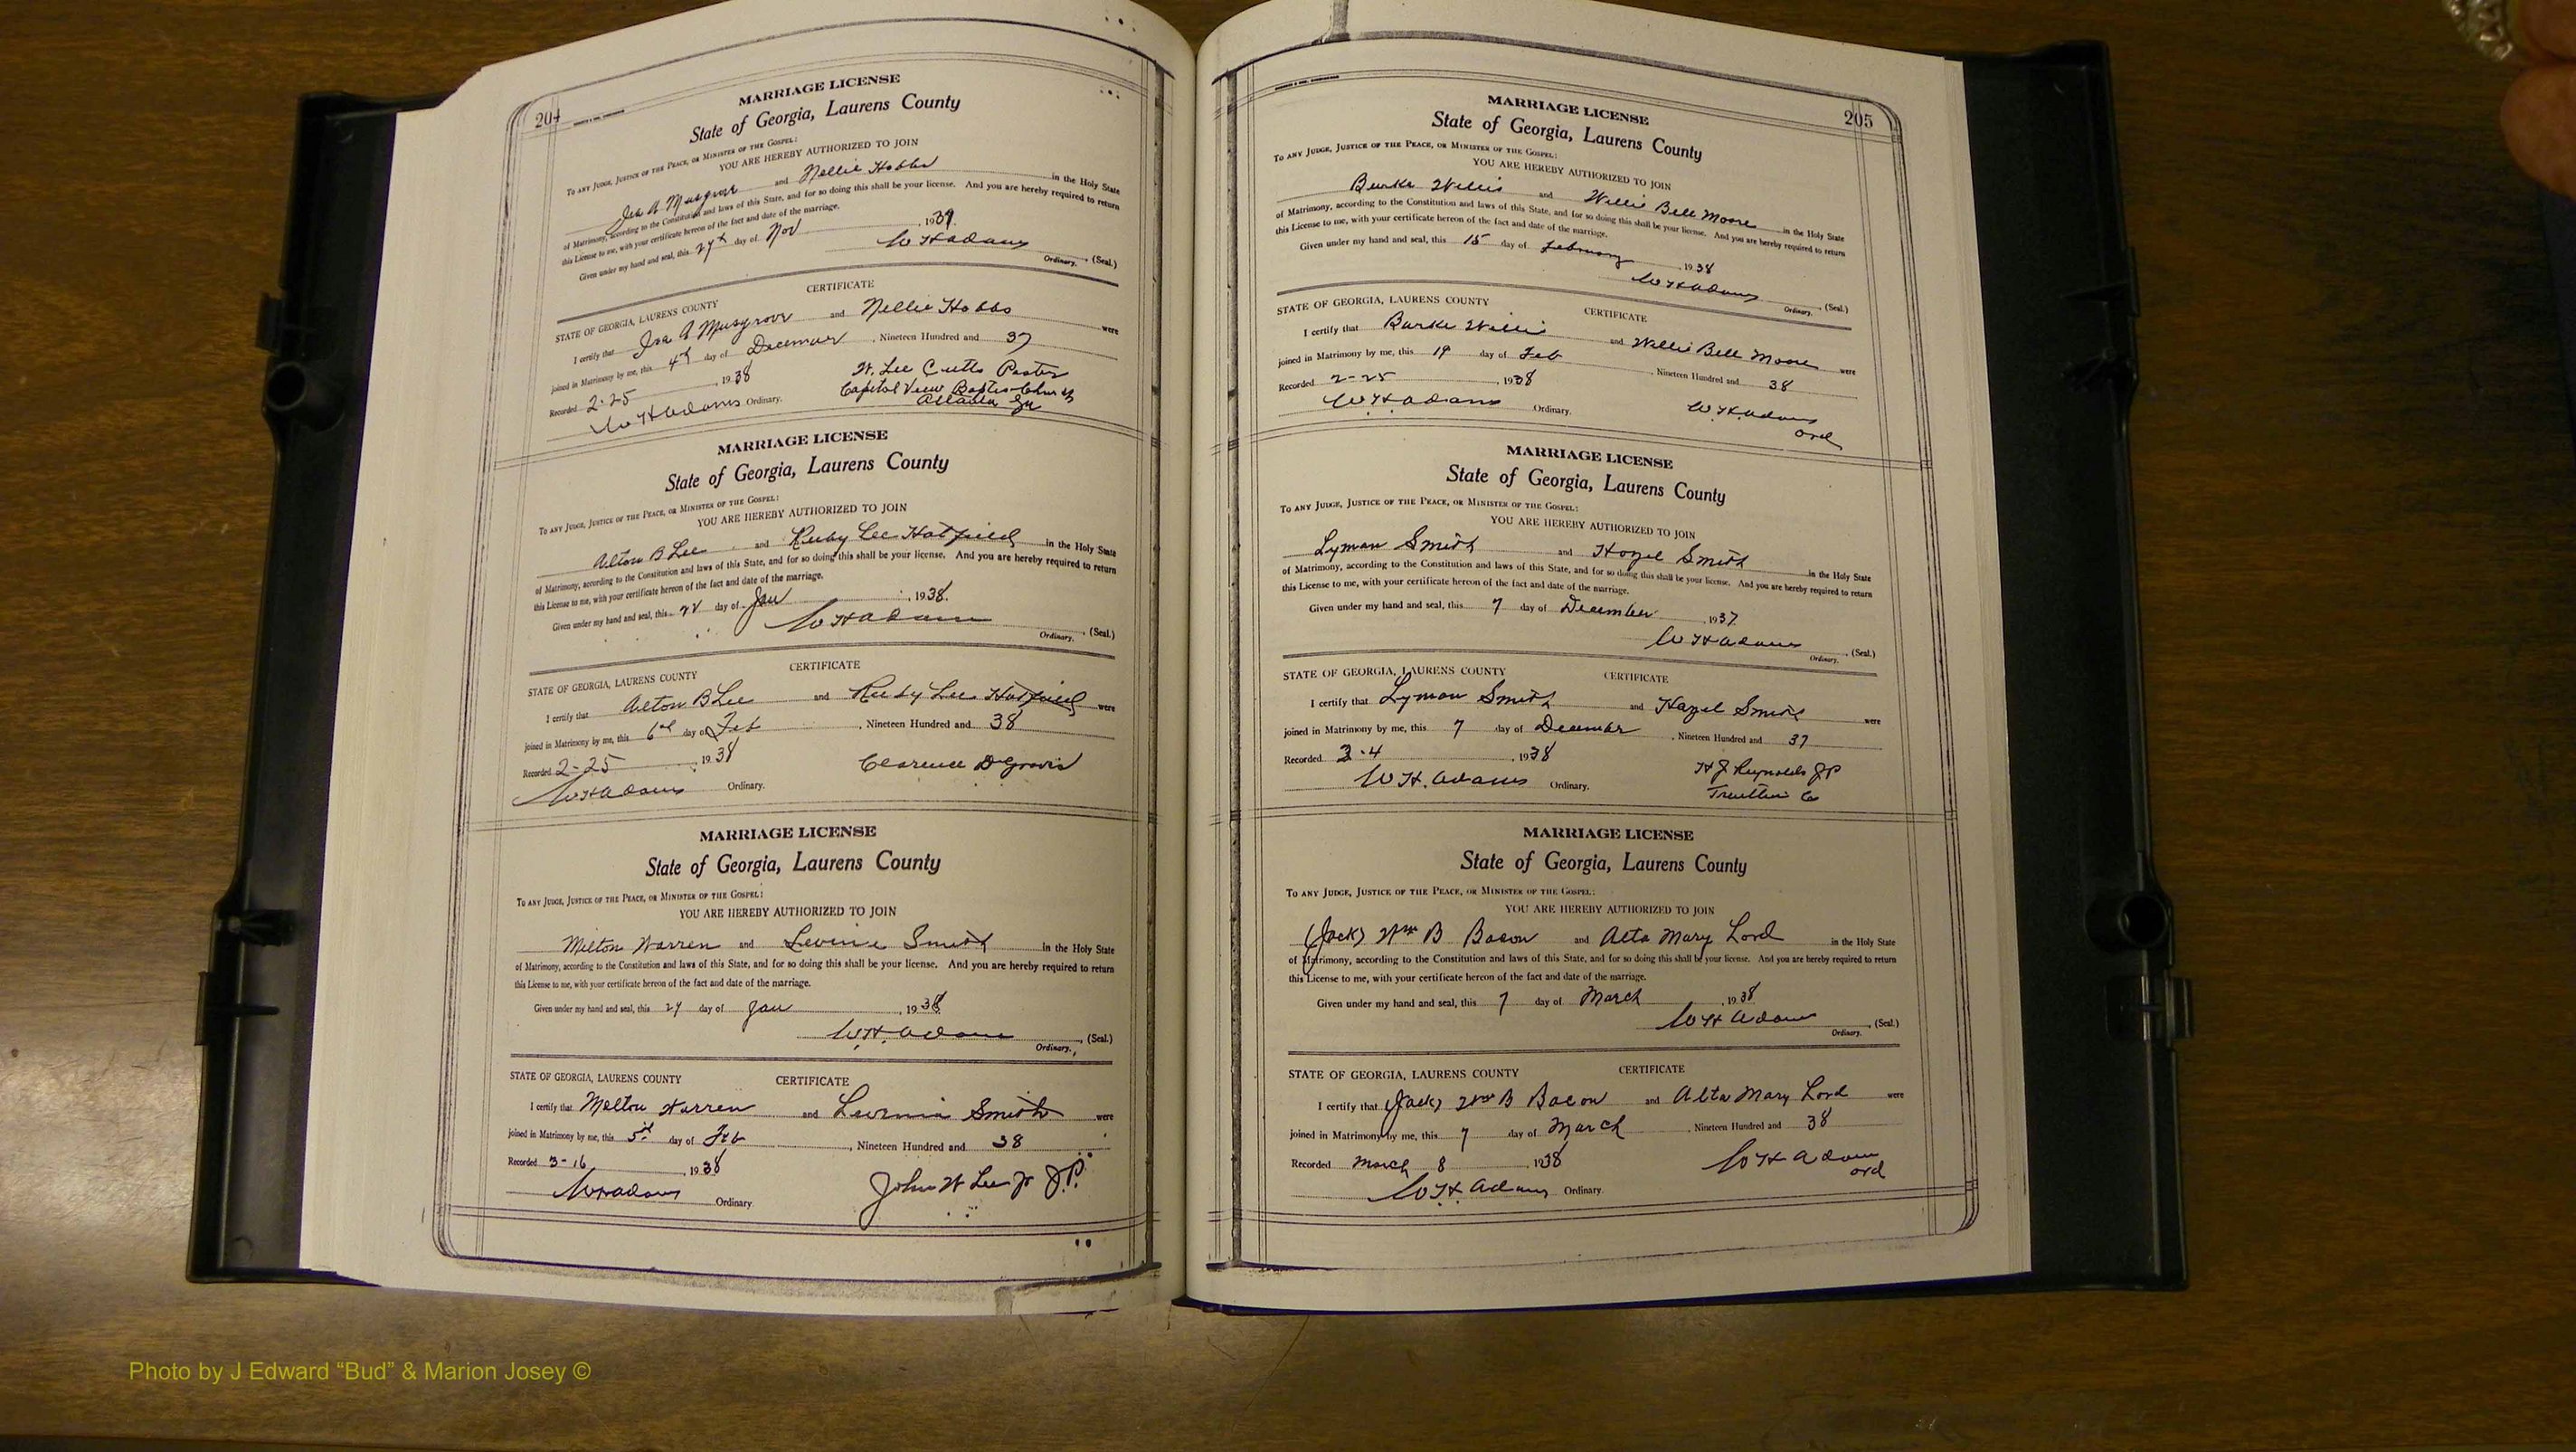 204
MARRIAGE LICENSE
State of Georgia, Laurens County
To any Judge, Justice of the Peace, or Minister of the Gospel:
YOU ARE HEREBY AUTHORIZED TO JOIN
Ira A Musgrove and Nellie Hobbs in the Holy State
of Matrimony, according to the Constitution and laws of this State, and for so doing this shall be your license. And you are hereby required to return
this License to me, with your certificate hereon of the fact and date of the marriage.
Given under my hand and seal, this day of Nov , 19
W H Adams , (Seal.)
Ordinary.
CERTIFICATE
STATE OF GEORGIA, LAURENS COUNTY
I certify that Ira A Musgrove and Nellie Hobbs were
joined in Matrimony by me, this 4th day of December , Nineteen Hundred and 37
Recorded 2-25 , 1938
W. Lee Cutts Pastor
Capitol View Baptist Church
Atlanta Ga
W H Adams Ordinary.
MARRIAGE LICENSE
State of Georgia, Laurens County
To any Judge, Justice of the Peace, or Minister of the Gospel:
YOU ARE HEREBY AUTHORIZED TO JOIN
Alton B Lee and Ruby Lee Hatfield in the Holy State
of Matrimony, according to the Constitution and laws of this State, and for so doing this shall be your license. And you are hereby required to return
this License to me, with your certificate hereon of the fact and date of the marriage.
Given under my hand and seal, this day of Jan , 1938.
W H Adams , (Seal.)
Ordinary.
CERTIFICATE
STATE OF GEORGIA, LAURENS COUNTY
I certify that Alton B Lee and Ruby Lee Hatfield were
joined in Matrimony by me, this 6 day of Feb , Nineteen Hundred and 38
Recorded 2-25 , 1938
Clarence
W H Adams Ordinary.
MARRIAGE LICENSE
State of Georgia, Laurens County
To any Judge, Justice of the Peace, or Minister of the Gospel:
YOU ARE HEREBY AUTHORIZED TO JOIN
Milton Warren and Smith in the Holy State
of Matrimony, according to the Constitution and laws of this State, and for so doing this shall be your license. And you are hereby required to return
this License to me, with your certificate hereon of the fact and date of the marriage.
Given under my hand and seal, this day of Jan , 1938
W.H. Adams , (Seal.)
Ordinary.,
STATE OF GEORGIA, LAURENS COUNTY CERTIFICATE
I certify that Melton Warren and Smith were
joined in Matrimony by me, this 5 day of Feb , Nineteen Hundred and 38
Recorded 3-16 , 1938
W H Adams Ordinary
John W Lee Jr J.P.
205
MARRIAGE LICENSE
State of Georgia, Laurens County
To any Judge, Justice of the Peace, or Minister of the Gospel:
YOU ARE HEREBY AUTHORIZED TO JOIN
Burke Willis and Willie Bell Moore in the Holy State
of Matrimony, according to the Constitution and laws of this State, and for so doing this shall be your license. And you are hereby required to return
this License to me, with your certificate hereon of the fact and date of the marriage.
Given under my hand and seal, this 15 day of February , 1938
W H Adams , (Seal.)
Ordinary.
STATE OF GEORGIA, LAURENS COUNTY CERTIFICATE
I certify that Burke Willis and Willie Bell Moore were
joined in Matrimony by me, this 19 day of Feb , Nineteen Hundred and 38
Recorded 2-25 , 1938
W.H. Adams Ordinary.
W H Adams
Ord
MARRIAGE LICENSE
State of Georgia, Laurens County
To any Judge, Justice of the Peace, or Minister of the Gospel:
YOU ARE HEREBY AUTHORIZED TO JOIN
Lyman Smith and Hazel Smith in the Holy State
of Matrimony, according to the Constitution and laws of this State, and for so doing this shall be your license. And you are hereby required to return
this License to me, with your certificate hereon of the fact and date of the marriage.
Given under my hand and seal, this 7 day of December , 1937
W H Adams , (Seal.)
Ordinary.
STATE OF GEORGIA, LAURENS COUNTY CERTIFICATE
I certify that Lyman Smith and Hazel Smith were
joined in Matrimony by me, this 7 day of December , Nineteen Hundred and 37
Recorded 3-4 , 1938
W.H. Adams Ordinary.
H J Reynolds JP
Treutlen Co
MARRIAGE LICENSE
State of Georgia, Laurens County
To any Judge, Justice of the Peace, or Minister of the Gospel:
YOU ARE HEREBY AUTHORIZED TO JOIN
(Jack) Wm B Bacon and Alta Mary Lord in the Holy State
of Matrimony, according to the Constitution and laws of this State, and for so doing this shall be your license. And you are hereby required to return
this License to me, with your certificate hereon of the fact and date of the marriage.
Given under my hand and seal, this 7 day of March , 1938
W H Adams , (Seal.)
Ordinary.
STATE OF GEORGIA, LAURENS COUNTY CERTIFICATE
I certify that (Jack) Wm B Bacon and Alta Mary Lord were
joined in Matrimony by me, this 7 day of March , Nineteen Hundred and 38
Recorded March 8 , 1938
W.H. Adams Ordinary.
W H Adams
ord
Photo by J Edward “Bud” & Marion Josey ©